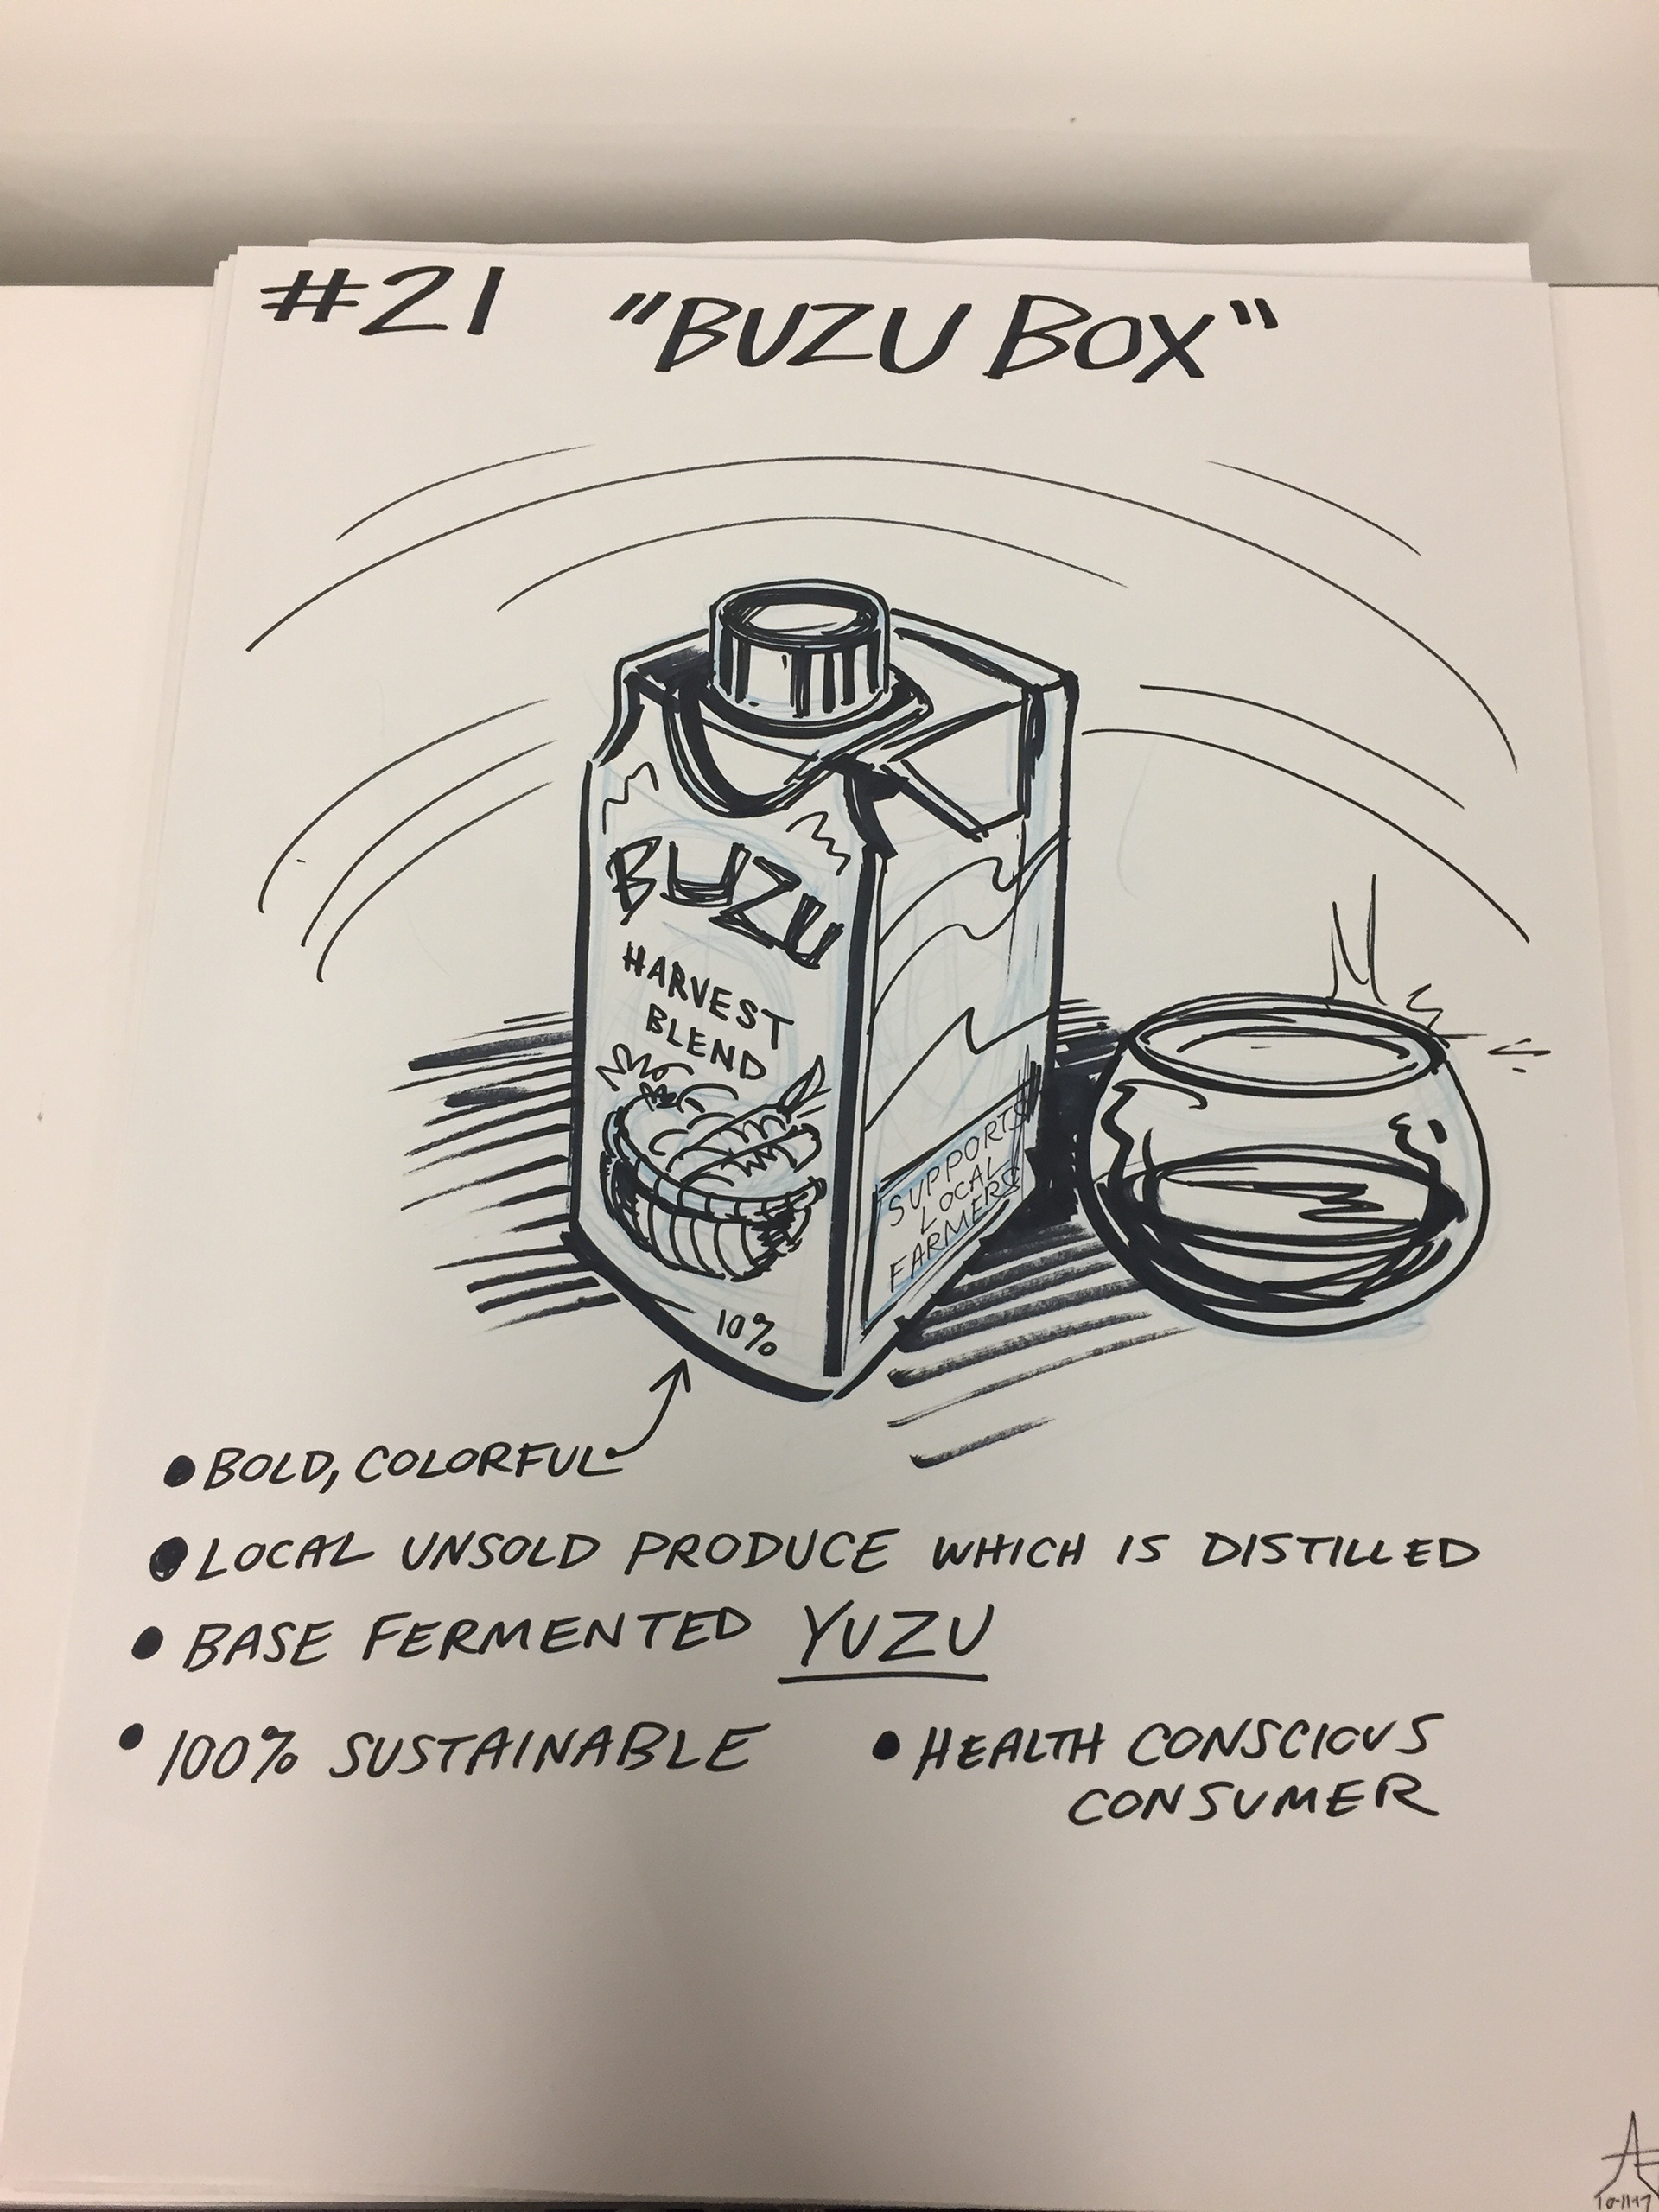 #21 "BUZU BOX"
BUZU
HARVEST
BLEND
10%
SUPPORTS
LOCAL
FARMERS
• BOLD, COLORFUL
• LOCAL UNSOLD PRODUCE WHICH IS DISTILLED
• BASE FERMENTED YUZU
• 100% SUSTAINABLE
• HEALTH CONSCIOUS
CONSUMER